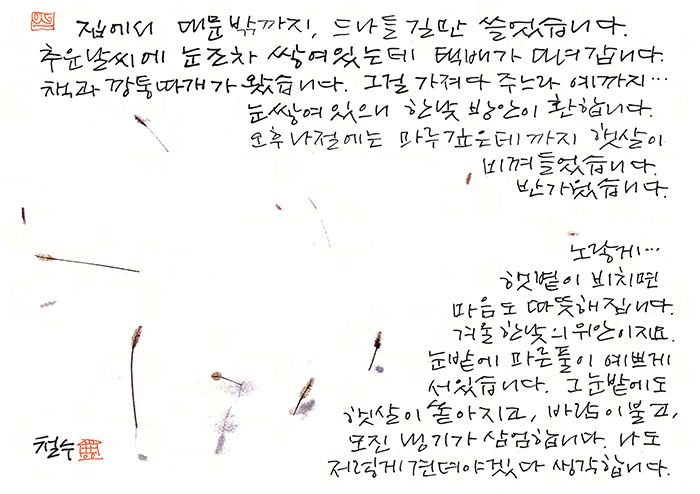 집에서 대문 밖까지, 드나들 길만 쓸었습니다.
추운날씨에 눈조차 쌓여있는데 택배가 다녀갑니다.
책과 깡통따개가 왔습니다. 그걸 가져다 주느라 예까지…
눈쌓여 있으니 한낮 방안이 환합니다.
오후 나절에는 마루 깊은데 까지 햇살이
비껴들었습니다.
반가웠습니다.
노랗게…
햇볕이 비치면
마음도 따뜻해집니다.
겨울 한낮의 위안이지요.
눈밭에 마른풀이 예쁘게
서있습니다. 그 눈밭에도
햇살이 쏟아지고, 바람이 불고,
모진 냉기가 삼엄합니다. 나도
저렇게 견뎌야겠다 생각합니다.
철수